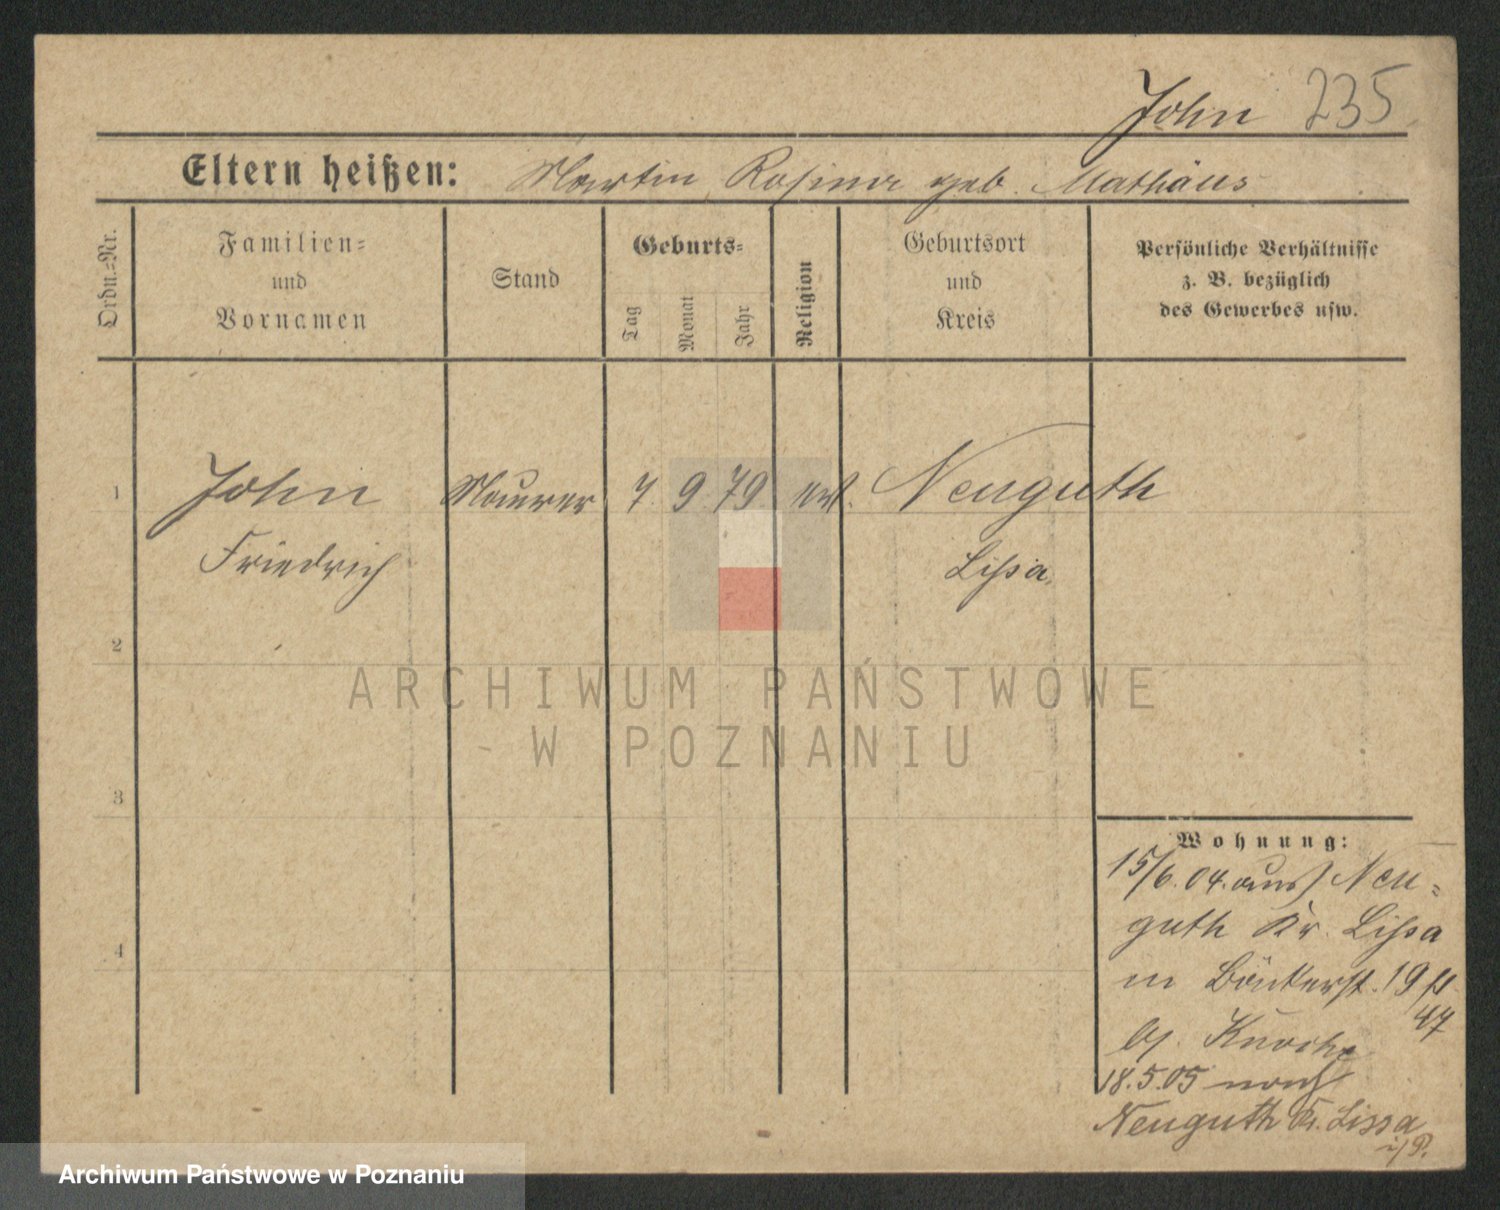 John 235
Eltern heißen: Martin, Rosina geb. Mathäus
Ordn.=Nr.
Familien=
und
Vornamen
Stand
Geburts=
Tag
Monat
Jahr
Religion
Geburtsort
und
Kreis
Persönliche Verhältnisse
z. B. bezüglich
des Gewerbes usw.
1 John Maurer 7. 9. 79. Neuguth
Friedrich Lissa
2
3
4
Wohnung:
15/6. 04. aus Neu=
guth Kr. Lissa
in Bäckerst. 19
47
b/
18.5.05 nach
Neuguth Kr. Lissa
i/P.
ARCHIWUM PAŃSTWOWE
W POZNANIU
Archiwum Państwowe w Poznaniu